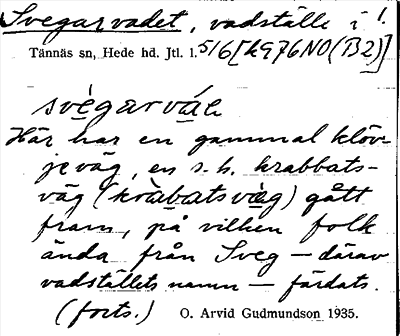 Svegarvadet, vadställe i 1.
Tännäs sn, Hede hd. Jtl. l. 516[k976NO(B2)]
svégarváɘ
Här har en gammal klöv-
jeväg, en s.k. krabbats-
väg (kràbatsvä̀g) gått
fram, på vilken folk
ända från Sveg – därav
vadställets namn – färdats.
(forts.) O. Arvid Gudmundson 1935.